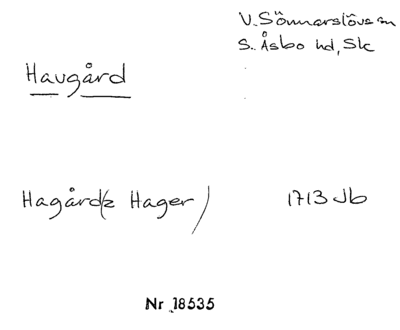 V. Sönnarslövs sn
S. Åsbo hd, Sk
Havgård
Hagård(z Hager)
1713 Jb
Nr 18535